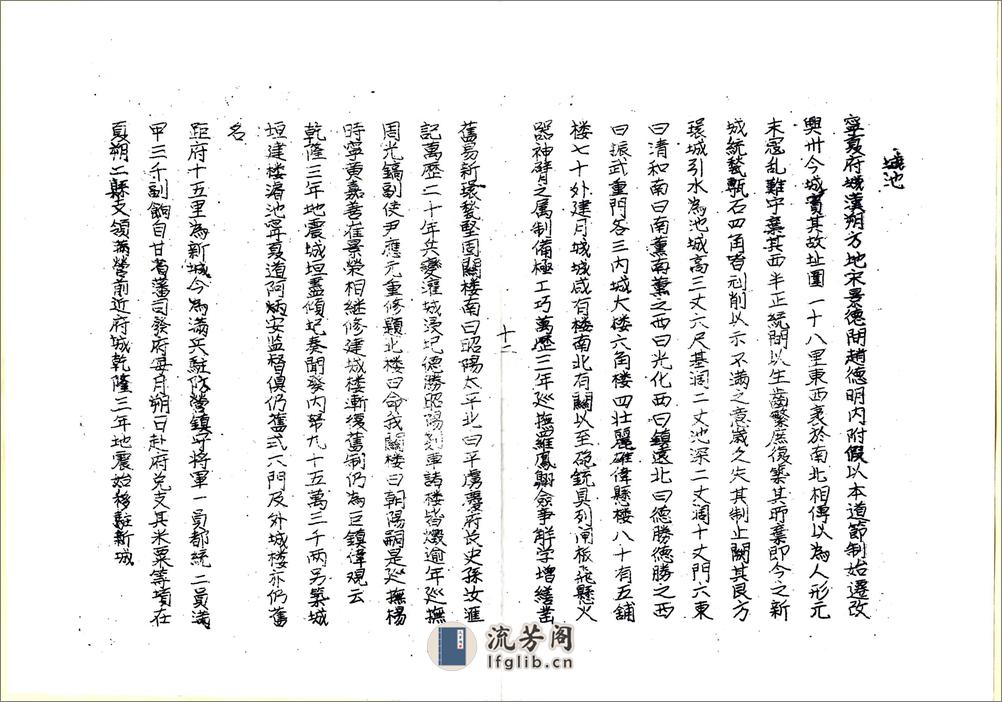 城池
寧夏府城漢朔方地宋景德間趙德明內附假以本道節制始遷改
興州今城實其故址圍一十八里東西袤於南北相傳以為人形元
末寇亂難守棄其西半正統間以生齒繁庶復築其所棄即今之新
城統甃甎石四角皆刓削以示不滿之意歲久失其制止闕其艮方
環城引水為池城高三丈六尺基濶二丈池深二丈濶十丈門六東
曰清和南曰南薰南薰之西曰光化西曰鎮遠北曰德勝德勝之西
曰振武重門各三內城大樓六角樓四壯麗雄偉懸樓八十有五舖
楼七十外建月城城咸有楼南北有關以至砲銃具列閘板飛懸火
器神臂之属制備極工巧萬歷三年巡撫羅鳳翺僉事解学增繕凿
十二
舊易新環甃堅固關楼南曰昭陽太平北曰平虜慶府长史孫汝滙
記萬歷二十年兵變灌城浸圮德勝昭陽列車諸楼皆燬逾年巡撫
周光鎬副使尹應元重修題北楼曰命我關楼曰朝陽嗣是巡撫楊
時寧黄嘉善崔景榮相継修建城楼漸復舊制仍為巨鎮偉觀云
乾隆三年地震城垣盡傾圮奏聞發內帑九十五萬三千两另築城
垣建楼濬池寧夏道阿炳安监督俱仍舊式六門及外城楼亦仍舊
名
距府十五里為新城今為滿兵駐防營鎮守将軍一員都統二員满
甲三千副餉自甘肅藩司發府每月朔日赴府兑支其米粟等項在
夏朔二縣支領满營前近府城乾隆三年地震始移駐新城
流芳阁
lfglib.cn